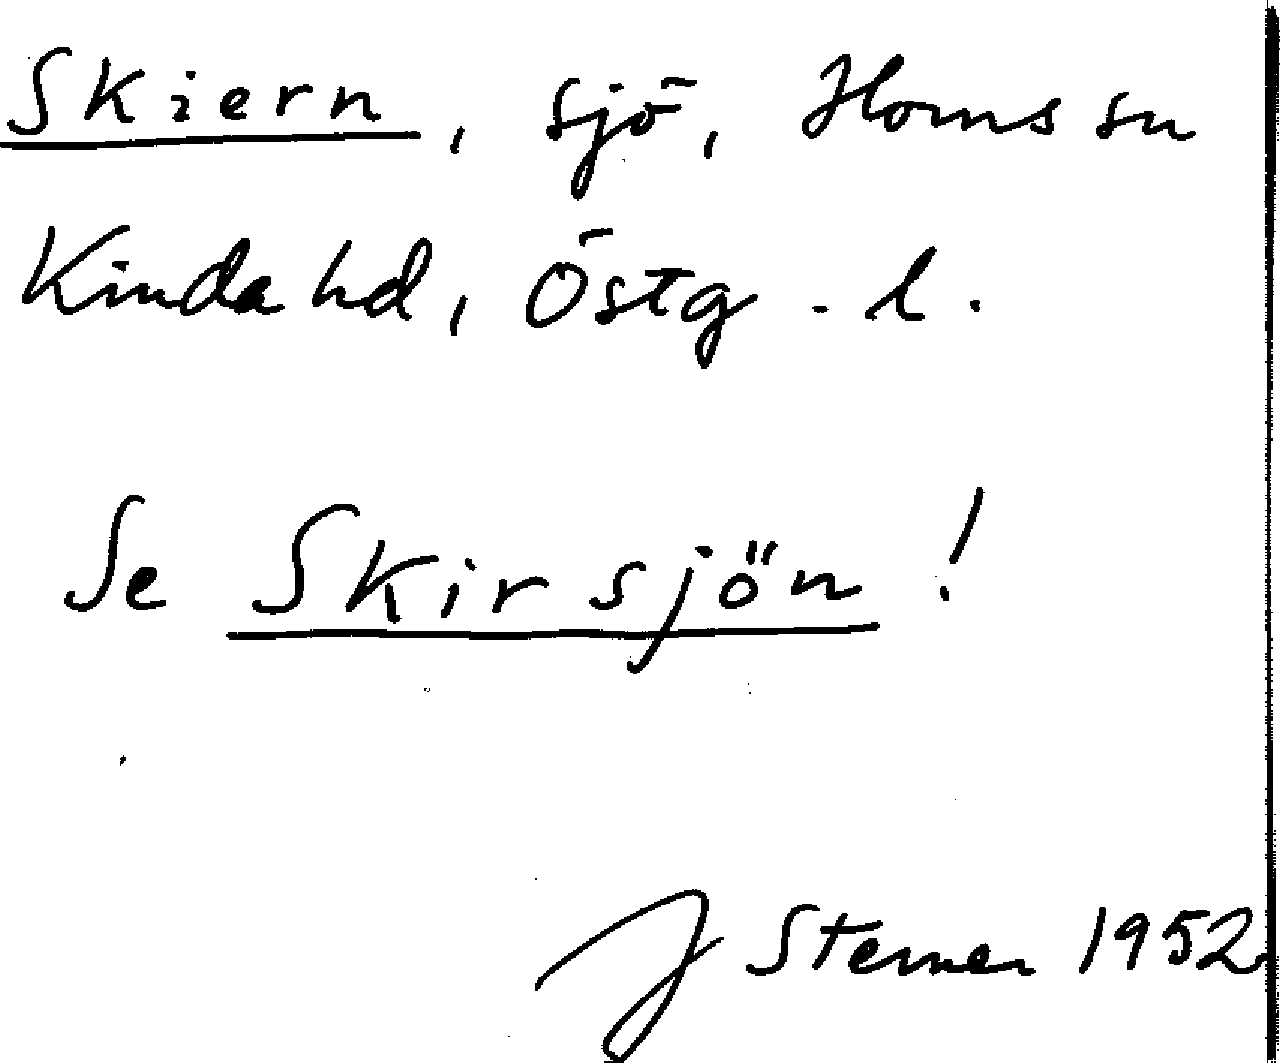 Skiern, sjö, Horns sn
Kinda hd, Östg. l.
Se Skirsjön!
J Sterner 1952